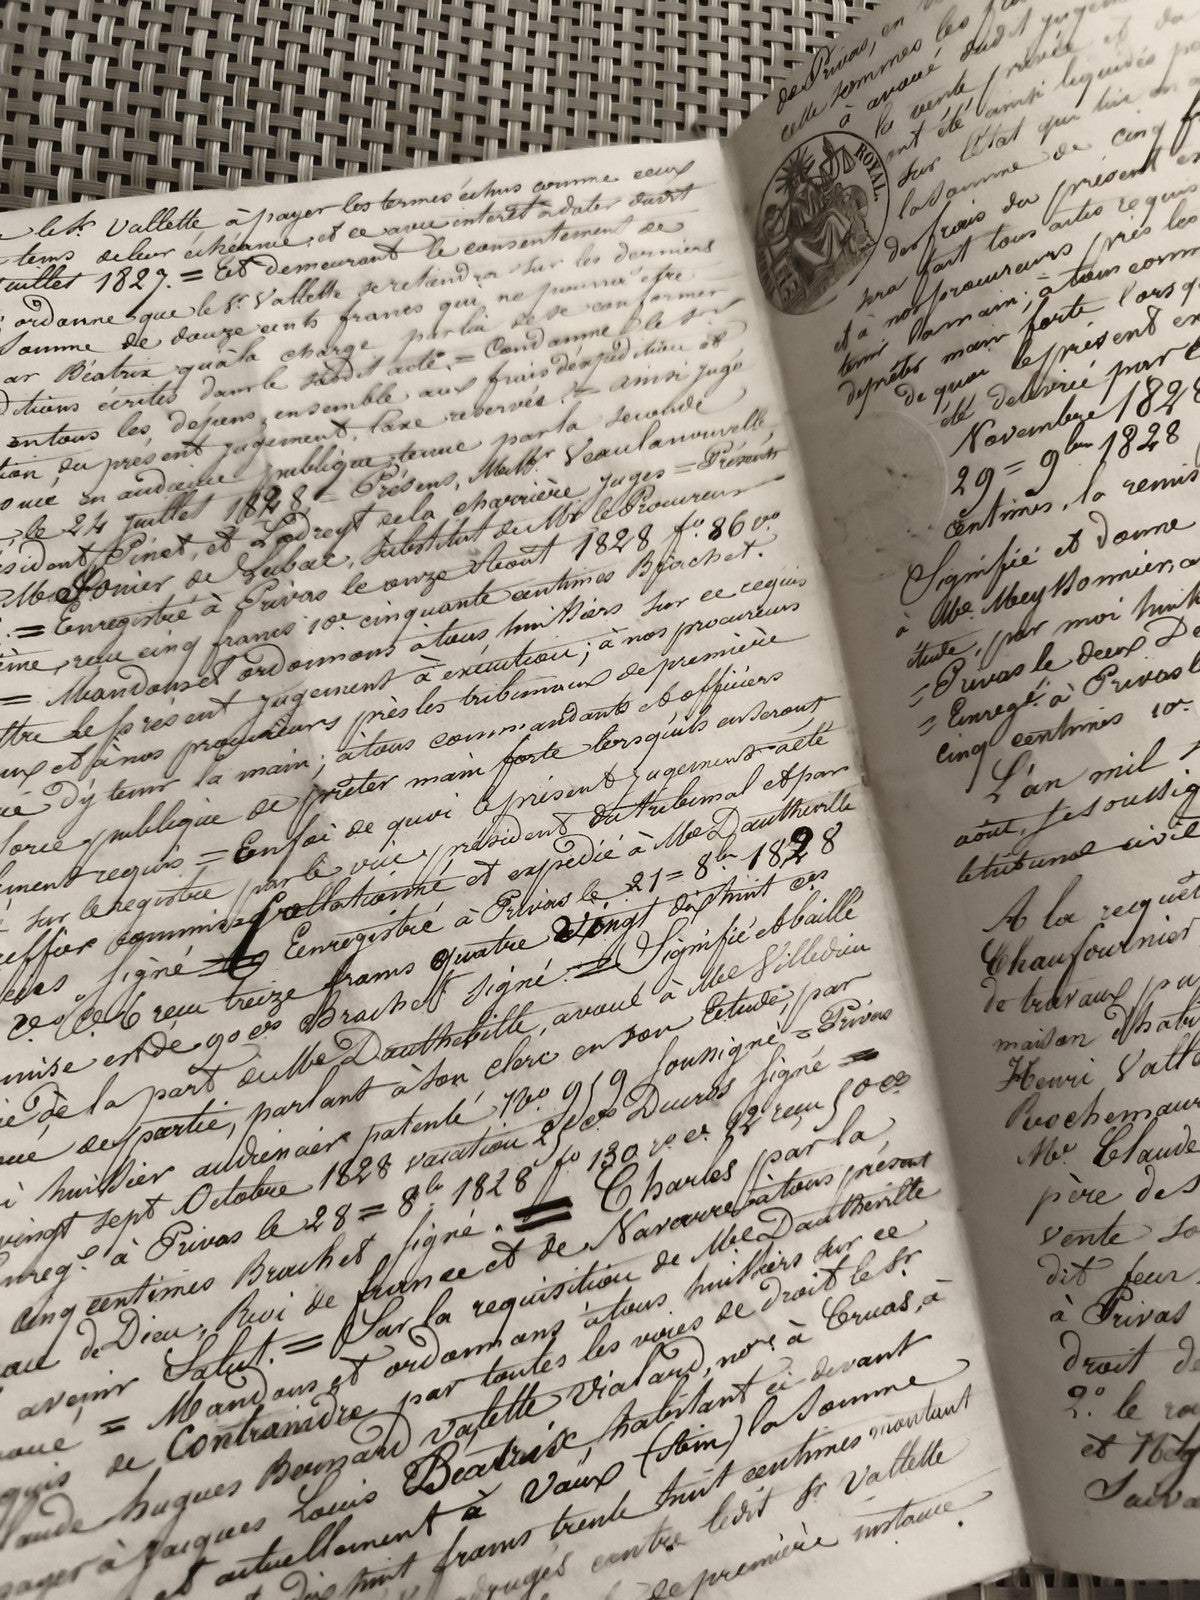 le Sr. Vallette à payer les termes échus comme ceux
tems de leur échéance, et ce avec intérêt à dater dudit
juillet 1827. = Et demeurant le consentement de
ordonne que le Sr. Vallette se retiendra sur les derniers
somme de douze cents francs qui ne pourra être
ar Béatrix qu'à la charge par lui de se conformer
ditions écrites dans le susdit acte. = Condamne le Sr
en tous les dépens, ensemble aux frais d'expédition et
tion, du présent jugement, taxe réservée. = ainsi jugé
oncé en audience publique tenue par la seconde
, le 24 juillet 1828. = Présens, M. Veaulanouvelle,
ésident, Pinet, et Ladreyt de la charrière juges = Présents
M. Monier de Lubac, Substitut de Mr le Procureur
. = Enregistré à Privas le onze Août 1828 fo. 86 vo
ème, reçu cinq francs 10e. cinquante centimes Brachet.
= Mandons et ordonnons à tous huissiers sur ce requis
ttre le présent jugement à exécution; à nos procureurs
ux et à nos procureurs près les tribunaux de première
d'y tenir la main; à tous commandants et officiers
force publique de prêter main forte lorsqu'ils en seront
ment requis = En foi de quoi le présent jugement a été
é sur le registre par le vice président du tribunal et par
effier commis = Collationné et expédié à Me Dautheville
signé = Enregistré à Privas le 21 = 8bre 1828
ce. 6 reçu treize francs quatre vingt dix huit ces
remise est de 90 ces Brachet signé. = Signifié et baillé
de la part de Me Dautheville, avoué à Me Villedieu
oué de partie, parlant à son clerc en son Etude, par
i huissier audiencier patenté No. 959 soussigné = Privas
vingt sept Octobre 1828 vacation 25 ces Ducros signé =
Enregé. à Privas le 28 = 8bre 1828 fo 130 ro ce. 12 reçu 50 ces
cinq centimes Brachet signé. = Charles par la
ace de Dieu, Roi de france et de Navarre à tous présent
avenir Salut. = Sur la requisition de Me Dautheville
oué = Mandons et ordonnons à tous huissiers sur ce
quis de Contraindre par toutes les voies de droit le Sr.
laude hugues Bernard Valette Vialard, nore à Cruas, à
payer à Jacques Louis Béatrix, habitant ci devant
et actuellement à Vaux (Ain) la somme
t dix huit francs trente huit centimes montant
adjugés contre ledit Sr Vallette
de première instance.
de Privas, en
cette sommes les frais
à avoué dudit jugement
la vente privée et de
ont été ainsi liquidés
sur l'état qui lui en
la somme de cinq fr
des frais du présent ex
sera fait tous autres requis
et à nos procureurs près les
tenir la main; à tous comm
de prêter main forte lorsqu
de quoi le présent ex
été délivré par
Novembre 1828
29 = 9bre 1828
centimes, la remis
Signifié et donné
à Me. Meyssonnier, a
étude, par moi huis
= Privas le deux De
= Enregé. à Privas l
cinq centimes 10e.
L'an mil
août, Je soussig
le tribunal civil
A la requêt
Chaufournier
de travaux pu
maison d'habi
Henri Vall
Rochemaur
Me. Claude
père des
vente so
dit feu
à Privas
droit de
2o. le ra
et Nég
Sauva
ROYAL.